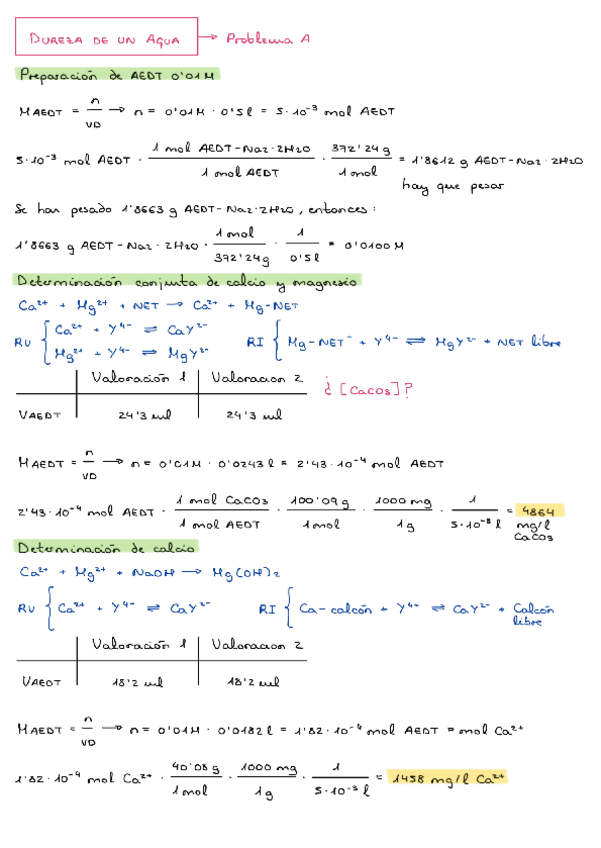 DUREZA DE UN AGUA → Problema A
Preparación de AEDT 0'01M
MAEDT = n/VD → n = 0'01M · 0'5 l = 5·10⁻³ mol AEDT
5·10⁻³ mol AEDT · 1 mol AEDT-Na2·2H2O / 1 mol AEDT · 372'24 g / 1 mol = 1'8612 g AEDT-Na2·2H2O
hay que pesar
Se han pesado 1'8663 g AEDT-Na2·2H2O, entonces:
1'8663 g AEDT-Na2·2H2O · 1 mol / 372'24g · 1 / 0'5 l = 0'0100 M
Determinación conjunta de calcio y magnesio
Ca²⁺ + Mg²⁺ + NET → Ca²⁺ + Mg-NET
RV { Ca²⁺ + Y⁴⁻ ⇌ CaY²⁻
Mg²⁺ + Y⁴⁻ ⇌ MgY²⁻
RI { Mg-NET⁻ + Y⁴⁻ ⇌ MgY²⁻ + NET libre
Valoración 1 Valoracion 2
¿[CaCO3]?
VAEDT 24'3 ml 24'3 ml
MAEDT = n/VD → n = 0'01M · 0'0243 l = 2'43·10⁻⁴ mol AEDT
2'43·10⁻⁴ mol AEDT · 1 mol CaCO3 / 1 mol AEDT · 100'09 g / 1 mol · 1000 mg / 1 g · 1 / 5·10⁻³ l = 4864 mg/l CaCO3
Determinación de calcio
Ca²⁺ + Mg²⁺ + NaOH → Mg(OH)2
RV { Ca²⁺ + Y⁴⁻ ⇌ CaY²⁻
RI { Ca-calcón + Y⁴⁻ ⇌ CaY²⁻ + Calcón libre
Valoración 1 Valoracion 2
VAEDT 18'2 ml 18'2 ml
MAEDT = n/VD → n = 0'01M · 0'0182 l = 1'82·10⁻⁴ mol AEDT = mol Ca²⁺
1'82·10⁻⁴ mol Ca²⁺ · 40'08 g / 1 mol · 1000 mg / 1 g · 1 / 5·10⁻³ l = 1458 mg/l Ca²⁺